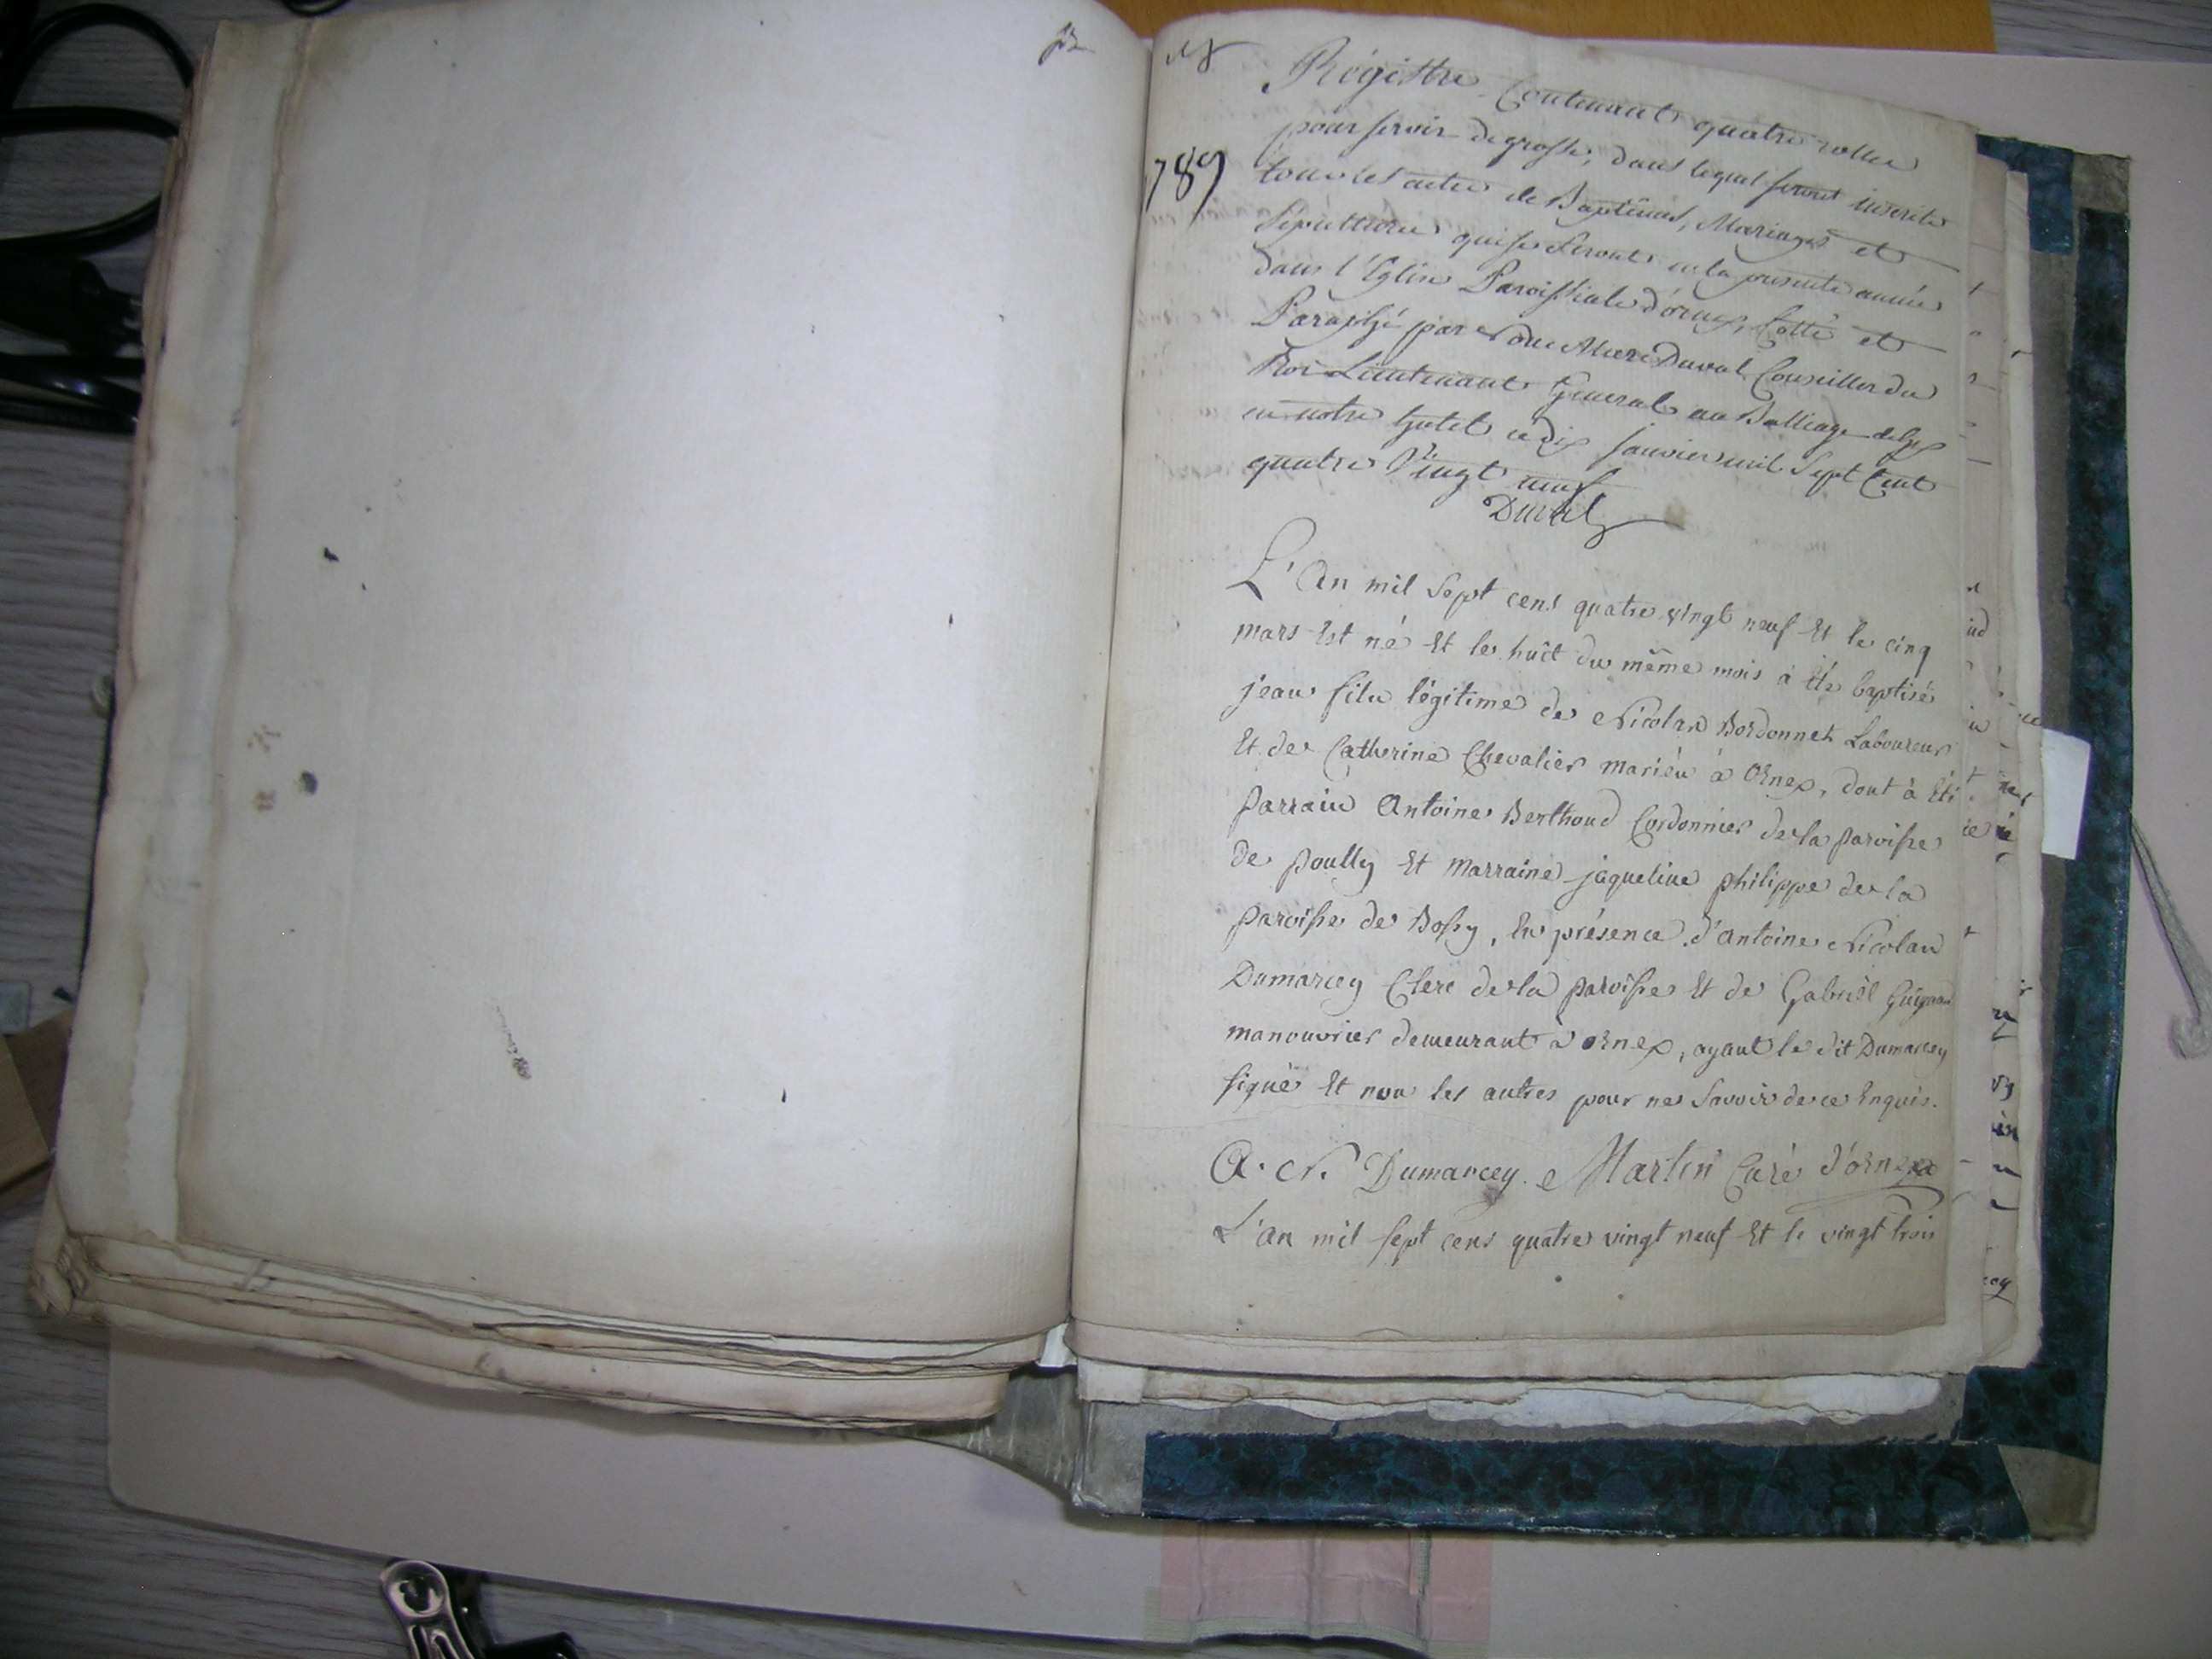 1789
Régistre Contenant quatre rolles
pour servir de grosse, dans lequel seront inscrits
tous les actes de Baptêmes, Mariages et
Sépultures qui se feront en la presente année
dans l'Eglise Paroissiale d'ornex, Cotté et
Paraphé par Nous Duval Conseiller du
Roi Lieutenant General au Balliage de Gex
en notre hotel ce dix Janvier mil Sept Cent
quatre Vingt neuf
Duval
L'An mil Sept cens quatre vingt neuf Et le cinq
mars Est né Et le huit du même mois à été baptisé
jean fils légitime de Nicolas Bordonnet Laboureur
Et de Catherine Chevalier mariés à Ornex, dont à Eté
parrain Antoine Berthoud Cordonnier de la paroisse
de poully Et Marraine jaqueline philippe de la
paroisse de Bossy, En présence d'antoine Nicolas
Dumarcey Clerc de la paroisse Et de Gabriël
manouvrier demeurant à ornex, ayant le dit Dumarcey
signé Et non les autres pour ne Savoir de ce Enquis.
A. N. Dumarcey. Martin Curé d'ornex
L'an mil sept cens quatre vingt neuf Et le vingt trois